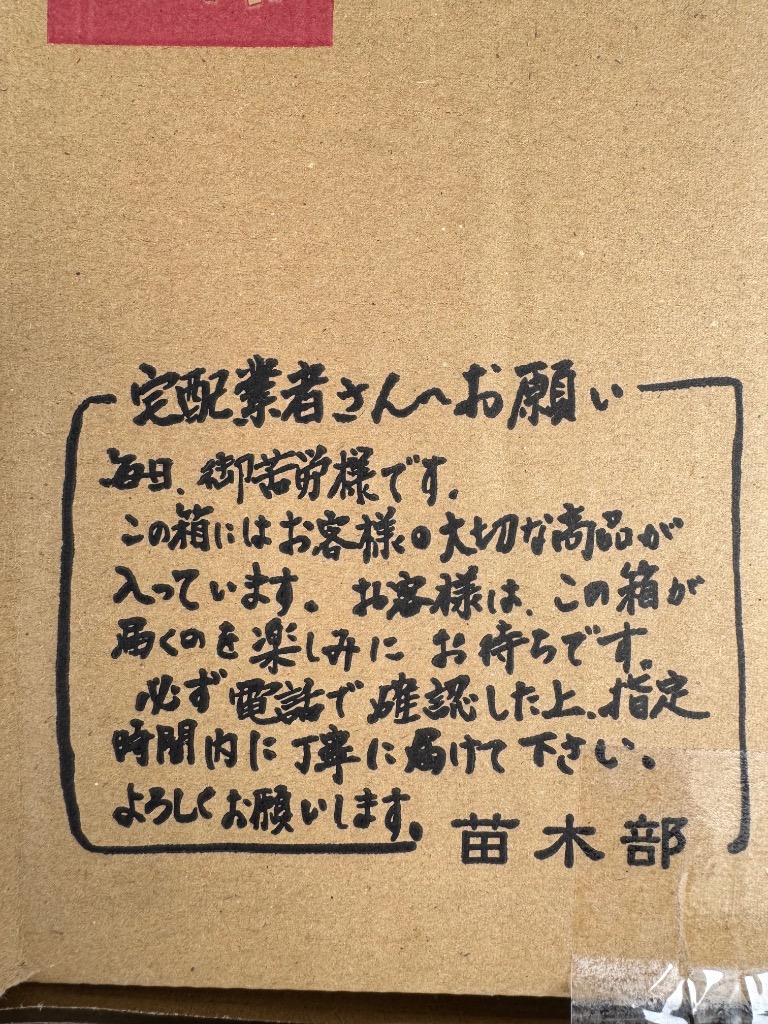 宅配業者さんへお願い
毎日、御苦労様です。
この箱にはお客様の大切な商品が
入っています。お客様は、この箱が
届くのを楽しみにお待ちです。
必ず電話で確認した上、指定
時間内に丁寧に届けて下さい。
よろしくお願いします。
苗木部